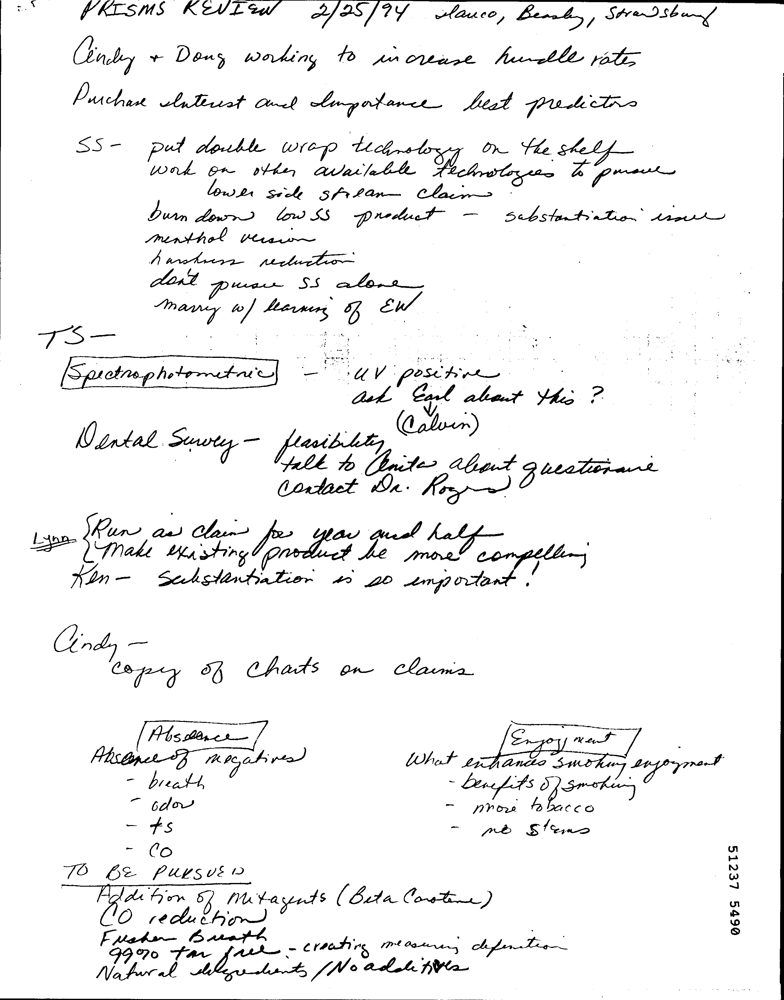 PRISMS REVIEW 2/25/94 , Beasley, Strawsburg
Cindy + Doug working to increase hurdle rates
Purchase Interest and Importance best predictors
SS - put double wrap technology on the shelf
work on other available technologies to pursue
lower side stream claim
burn down low SS product - substantiation issue
menthol version
harshness reduction
don't pursue SS alone
marry w/ learning of EW
TS -
Spectrophotometric - UV positive
ask Earl about this ?
(Calvin)
Dental Survey - feasibility
talk to Anita about questionaire
contact Dr. Rogers
Lynn { Run as claim for year and half
Make existing product be more compelling
Ken - Substantiation is so important !
Cindy -
copy of charts on claims
Absence
Absence of negatives
- breath
- odor
- ts
- CO
Enjoyment
What enhances smoking enjoyment
- benefits of smoking
- more tobacco
- no stems
TO BE PURSUED
Addition of Mitagents (Beta Carotene)
CO reduction
Fresher Breath
99% tar free - creating measuring definition
Natural Ingredients / No additives
51237 5490